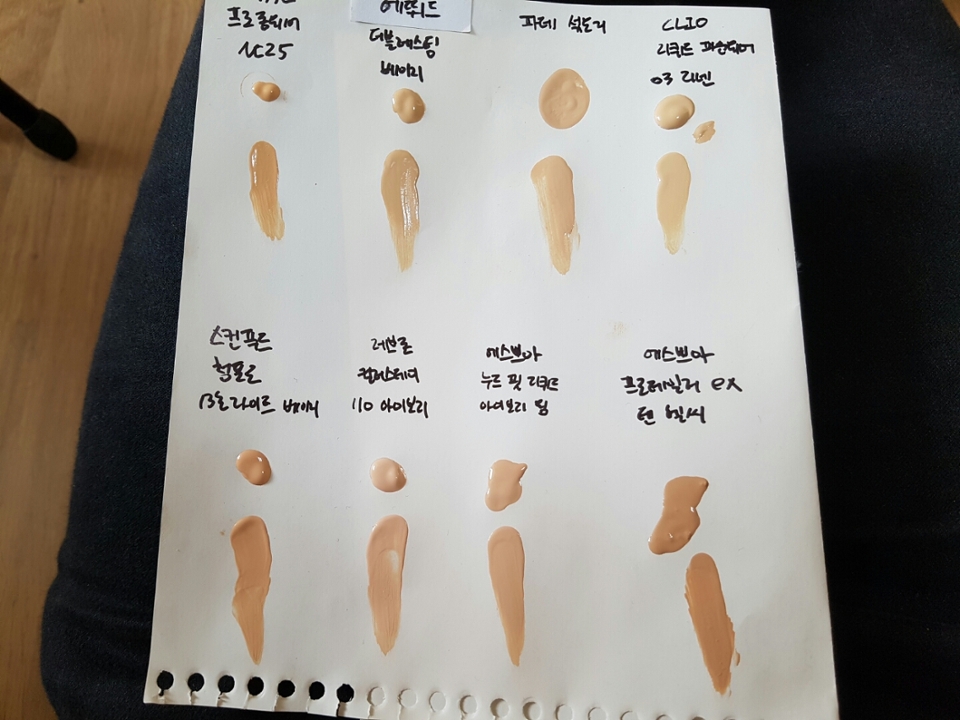 프로롱웨어
NC25
에뛰드
더블래스팅
베이지
파데 섞도리
CLIO
리퀴드 파운웨어
03 리넨
스킨푸드
13호 라이트 베이지
레브론
컬러스테이
110 아이보리
에스쁘아
누드 핏 리퀴드
아이보리 딥
에스쁘아
프로테일러 ex
탄 벨씨